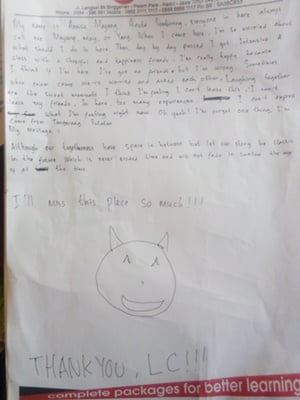 Jl. Langkat 88 Singgahan - Pelem - Pare - Kediri - Jawa Timur
My name is Mayang everyone in here always
call me Mayang enjoy or Yang. When I came here, I'm so worried about
What should I do in here. Then day by day passed I got intensive A
class with a cheerful and happiness friends. I'm really happy because
I think if I'm here I've got no promise but I'm wrong. Sometimes
When exam came we're worried and ask each other. Laughing together
are the sweet moments I think I'm feeling I can't leave this. I can't
leave my friends. In here too many experiences I can't express
What I'm feeling right now. Oh yeah! I'm forget one thing, I'm
Came from Tangerang Selatan
My message :
Although our togetherness have space in between but let our story be classic
in the future Which is never ended time and will not fade in swallow the age
of all the time
I'll miss this place so much!!!
THANKYOU, LC!!!
complete packages for better learning